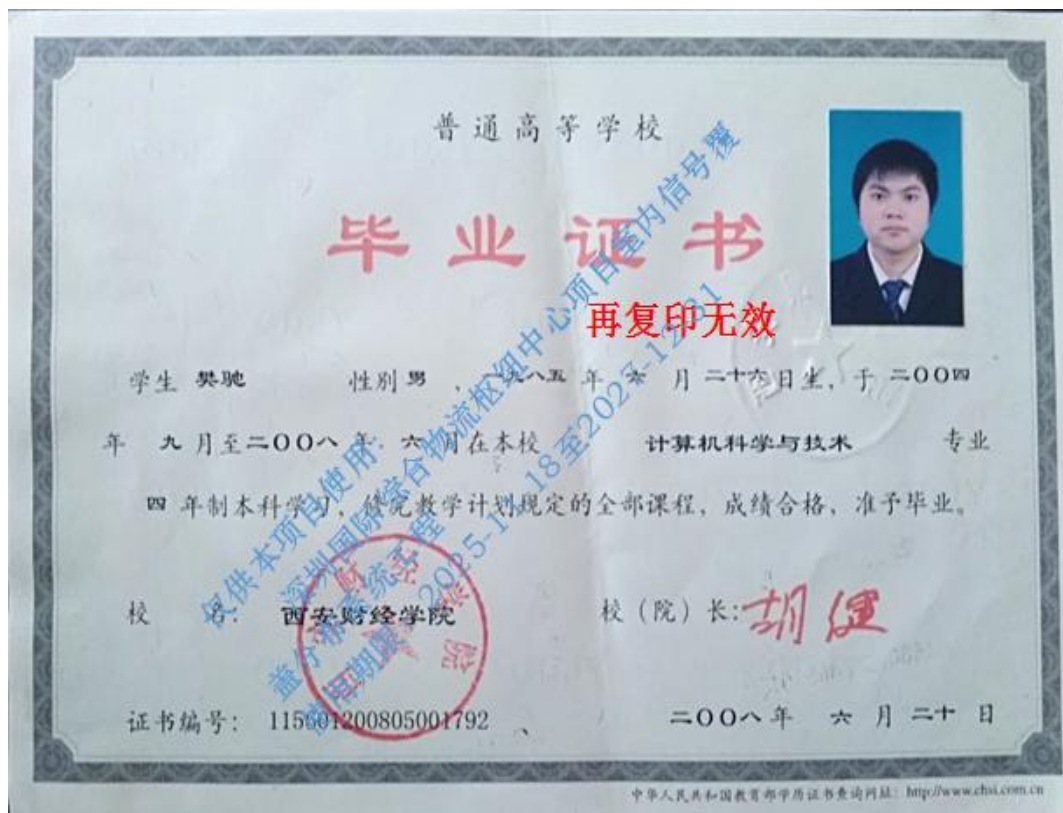 普通高等学校
毕业证书
再复印无效
学生 樊驰 性别 男 ，一九八五 年 六 月 二十六 日生，于 二〇〇四
年 九 月至 二〇〇八 年 六 月在本校 计算机科学与技术 专业
四 年制本科学习，修完教学计划规定的全部课程，成绩合格，准予毕业。
校 名： 西安财经学院 校（院）长：胡健
证书编号： 115601200805001792 二〇〇八 年 六 月 二十 日
中华人民共和国教育部学历证书查询网址：http://www.chsi.com.cn
仅供本项目使用：
深圳国际综合物流枢纽中心项目室内信号覆
盖分布系统工程